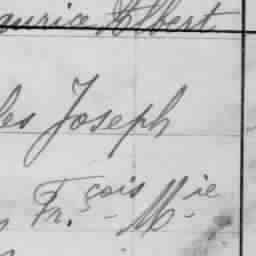 aurice Albert
les Joseph
Fr.çois - M-ie